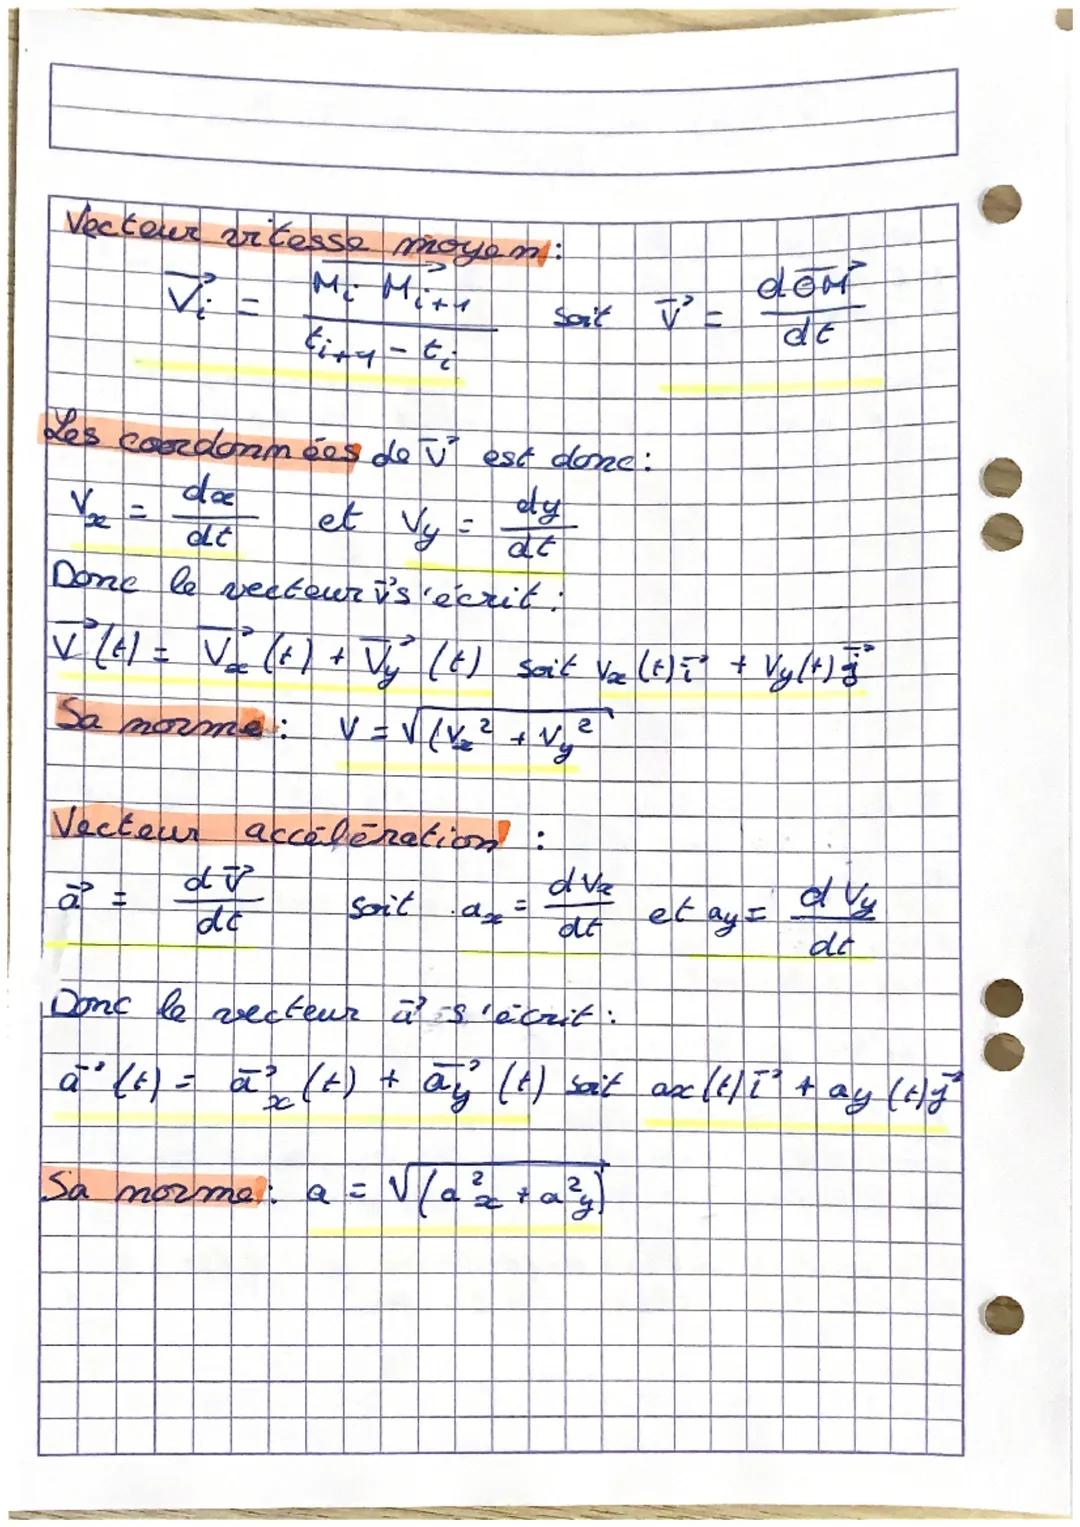 Vecteur vitesse moyen :
V⃗i = MiMi+1⃗ / ti+1 - ti soit V⃗ = dOM⃗ / dt
Les coordonnées de V⃗ est donc :
Vx = dx / dt et Vy = dy / dt
Donc le vecteur v⃗ s'écrit :
V⃗(t) = V⃗x (t) + V⃗y (t) soit Vx (t) i⃗ + Vy(t) j⃗
Sa norme : V = √(Vx² + Vy²
Vecteur accélération :
a⃗ = dV⃗ / dt soit ax = dVx / dt et ay = dVy / dt
Donc le vecteur a⃗ s'écrit :
a⃗ (t) = a⃗x (t) + a⃗y (t) soit ax (t) i⃗ + ay (t) j⃗
Sa norme : a = √(a²x + a²y)